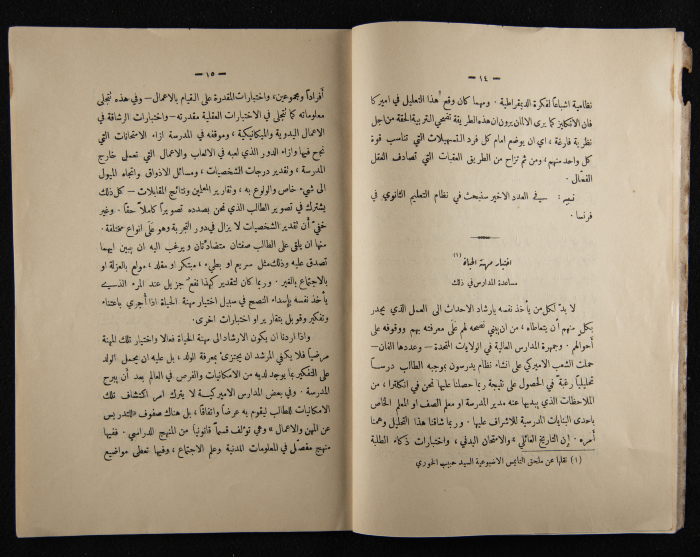 — ١٤ —
نظامية اشباعاً لفكرة الديمقراطية . ومهما كان وقع هذا التعليل في اميركا
فان الانكليز كما يرى الالمان يرون ان هذه الطريقة تضحي التربية الحقة من اجل
نظرية فارغة ، اي ان يوضع امام كل فرد التسهيلات التي تناسب قوة
كل واحد منهم ، ومن ثم تزاح من الطريق العقبات التي تصادف العقل
الفعّال .
تنبيه : في العدد الاخير سنبحث في نظام التعليم الثانوي في
فرنسا .
اختيار مهنة الحياة (١)
مساعدة المدارس في ذلك
لا بدّ لكل من يأخذ نفسه بارشاد الاحداث الى العمل الذي يجدر
بكل منهم أن يتعاطاه ، من ان يبني نصحه لهم على معرفته بهم ووقوفه على
أحوالهم . وجمهرة المدارس العالية في الولايات المتحدة — وعددها الفان —
حملت الشعب الاميركي على انشاء نظام يدرسون بموجبه الطالب درساً
تحليلياً رغبةً في الحصول على نتيجة ربما حصلنا عليها نحن في انكلترا ، من
الملاحظات الذي يبديها عنه مدير المدرسة او معلم الصف او المعلم الخاص
باحدى البنايات المدرسية للاشراف عليها . وربما شاقنا هذا التحليل وهمنا
أمره . إن التاريخ العائلي ، والامتحان البدني ، واختبارات ذكاء الطلبة
(١) نقلها عن ملحق التايمس الاسبوعية السيد حبيب الخوري
— ١٥ —
أفراداً ومجموعين ، واختبارات المقدرة على القيام بالاعمال — وفي هذه تتجلى
معلوماته كما تتجلى في الاختبارات العقلية مقدرته — واختبارات الرشاقة في
الاعمال اليدوية والميكانيكية ، وموقفه في المدرسة ازاء الامتحانات التي
نجح فيها وازاء الدور الذي لعبه في الالعاب والاعمال التي تعطى خارج
المدرسة ، وتقدير درجات الشخصيات ، ومسائل الاذواق واتجاه الميول
الى شيء خاص والولوع به ، وتقارير المعلمين ونتائج المقابلات — كل ذلك
يشترك في تصوير الطالب الذي نحن بصدده تصويراً كاملاً حقاً . وغير
خفيّ أن تقدير الشخصيات لا يزال في دور التجربة وهو على انواع مختلفة .
منها ان يلقى على الطالب صفتان متضادّتان ويرغب اليه ان يبين ايهما
تصدق عليه وذلك مثل سريع او بطيء ، مبتكر او مقلد ، مولع بالعزلة او
بالاجتماع بالغير . وربما كان لتقدير كهذا نفعٌ جزيل عند المرء الذي
يأخذ نفسه بإسداء النصح في سبيل اختيار مهنة الحياة اذا أجري باعتناء
وتفكير وقوبل بتقارير او اختبارات اخرى .
واذا اردنا ان يكون الارشاد الى مهنة الحياة فعالا واختيار تلك المهنة
مرضياً فلا يكفي المرشد ان يجتزئ بمعرفة الولد ، بل عليه ان يحمل الولد
على التفكير بما يوجد لديه من الامكانيات والفرص في العالم بعد أن يبرح
المدرسة . وفي بعض المدارس الاميركية لا يترك امر اكتشاف تلك
الامكانيات للطالب ليقوم به عرضاً واتفاقاً ، بل هناك صفوف «للتدريس
عن المهن والاعمال» وهي تؤلف قسماً قانونياً من المنهج الدراسي . ففيها
منهج مفصّل في المعلومات المدنية وعلم الاجتماع ، وفيها تعطى مواضيع